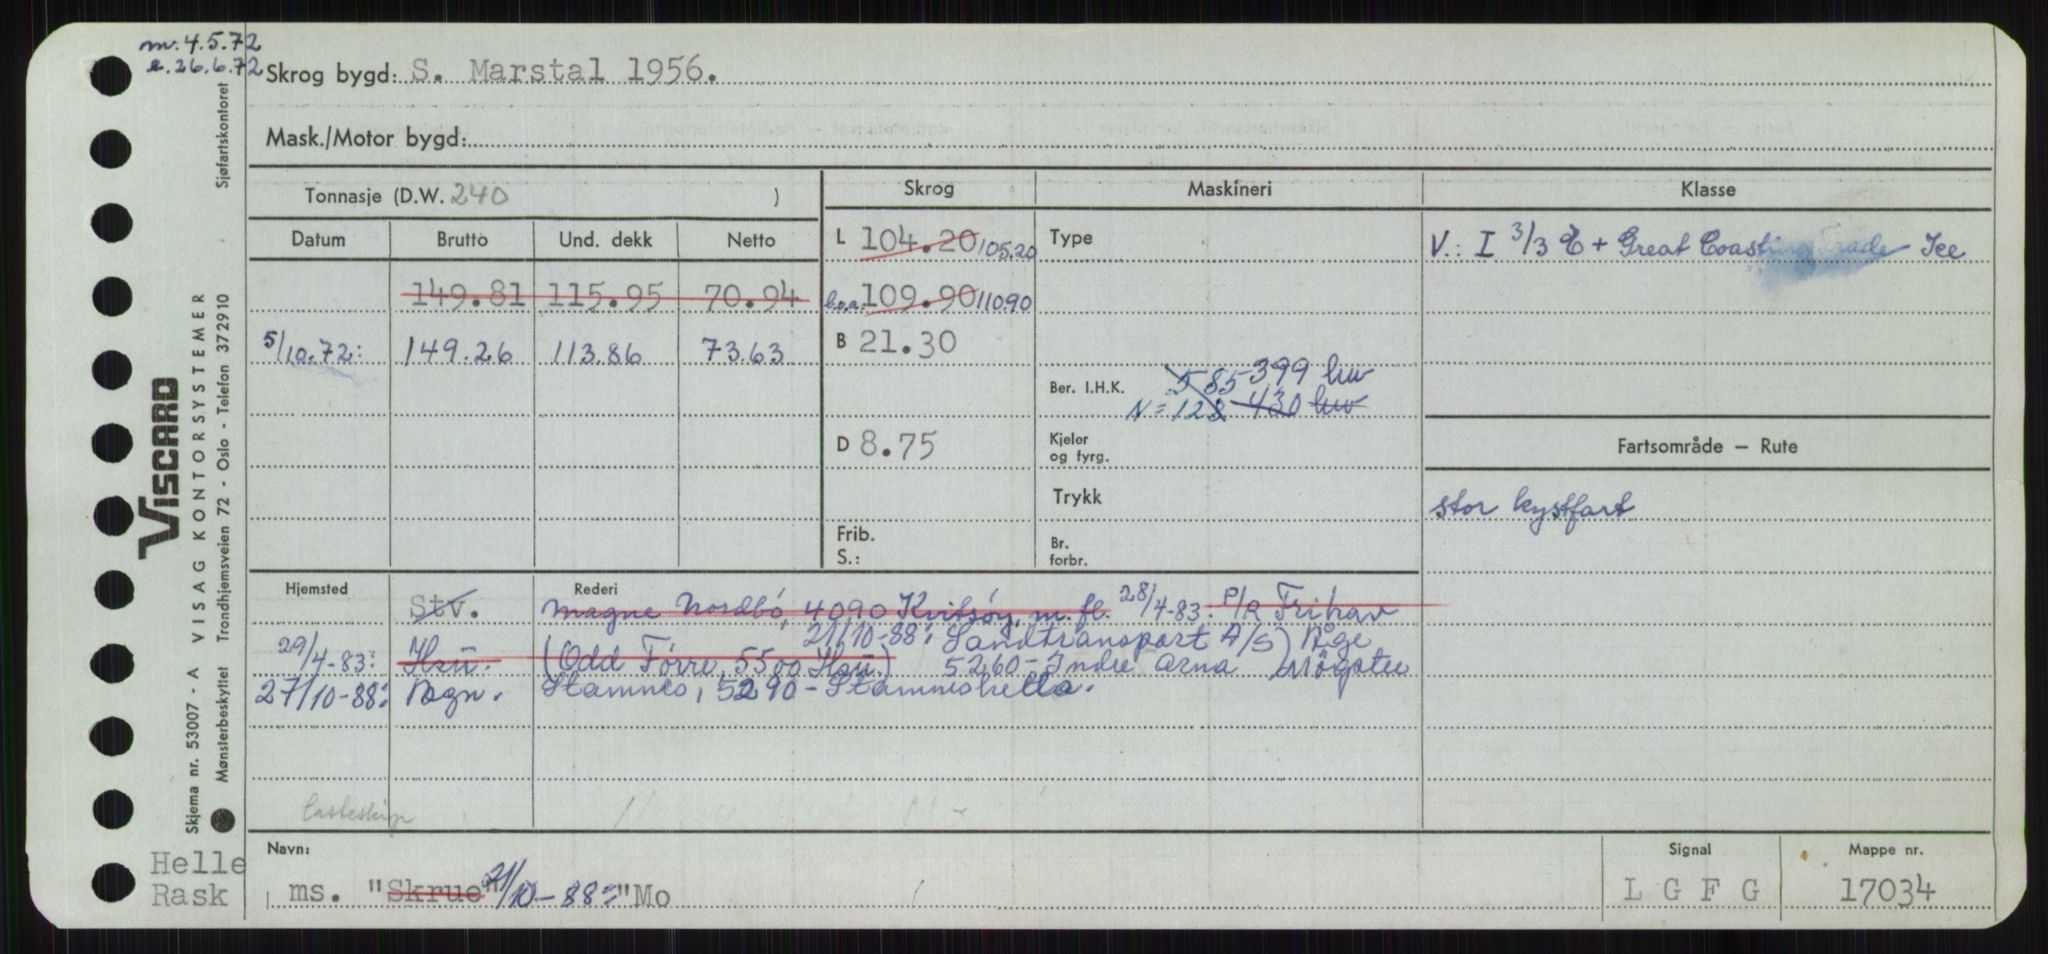 m. 4.5.72
e. 26.6.72
Skrog bygd: S. Marstal 1956.
Mask./Motor bygd:
Tonnasje (D.W. 240 )
Datum Brutto Und. dekk Netto
149.81 115.95 70.94
5/10.72: 149.26 113.86 73.63
Skrog
L 104.20 105.20
l.o.a. 109.90 110.90
B 21.30
D 8.75
Frib.
S.:
Maskineri
Type
Ber. I.H.K. 585 399 luv
N = 128 430 luv
Kjeler
og fyrg.
Trykk
Br.
forbr.
Klasse
V.: I 3/3 E + Great Coasting Trade Ice
Fartsområde — Rute
stor kystfart
Hjemsted Rederi
Stv. Magne Nordbö, 4090 Kvitsöy, m. fl. 28/4-83: P/R Frihav
21/10-88: Sandtransport A/S) Åge
29/4-83: Hsu. (Odd Förre, 5500 Hsu.) 5260 - Indre Arna Mögster
27/10-88: Bgn. Stamnes, 5290 - Stamneshella.
Lasteskip
Navn:
ms. "Skrue" 21/10-88: "Mo
Signal
L G F G
Mappe nr.
17034
Helle
Rask
VISCARD
Skjema nr. 53007 - A VISAG KONTORSYSTEMER
Mønsterbeskyttet Trondhjemsveien 72 - Oslo - Telefon 372910 Sjøfartskontoret